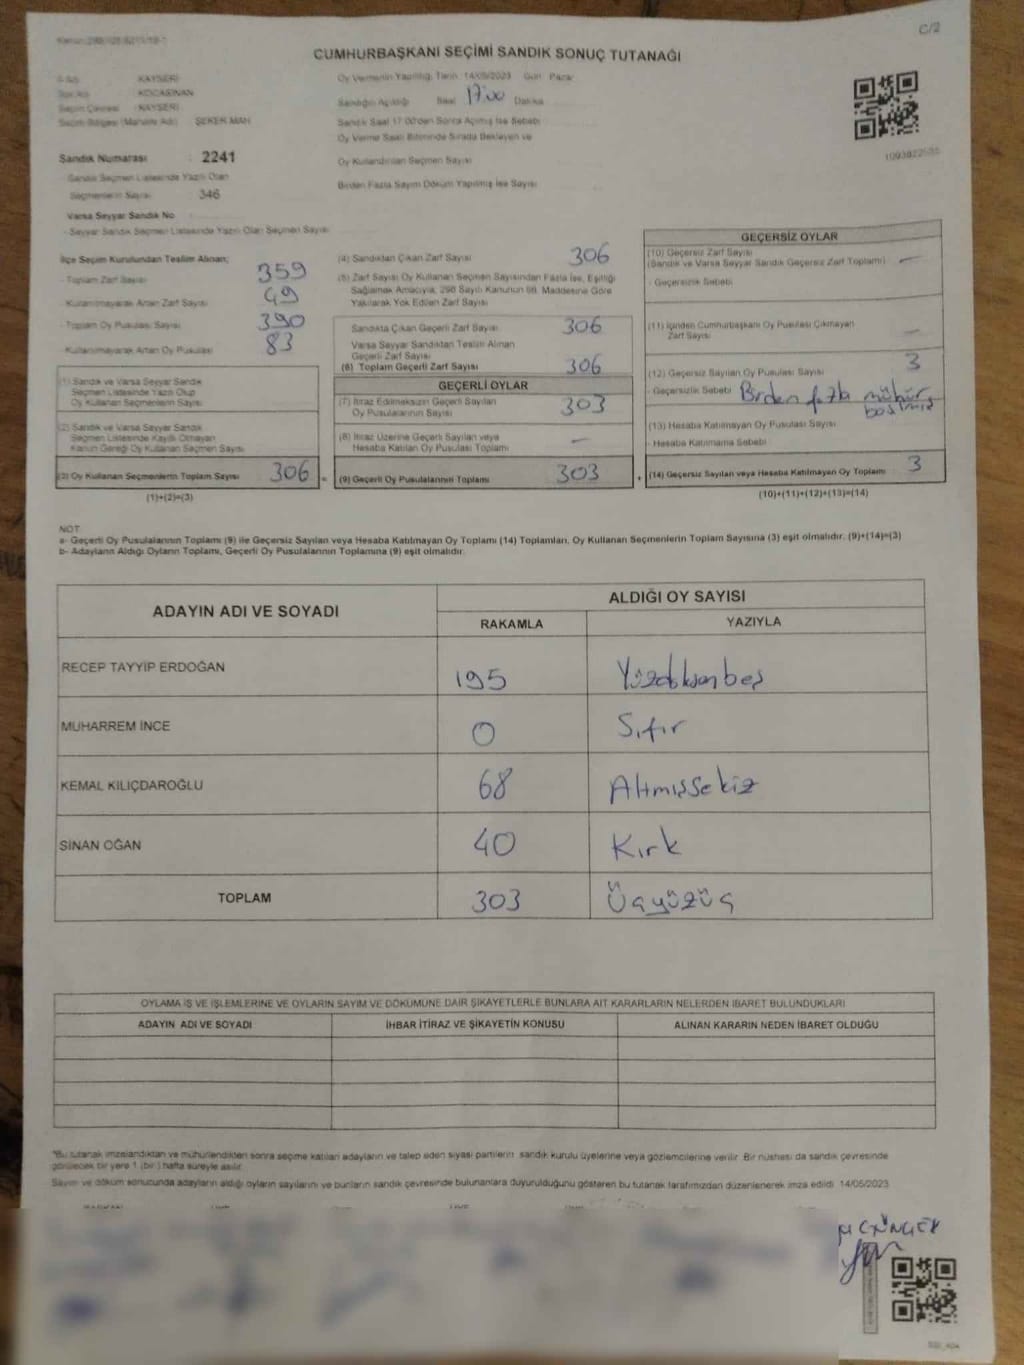 C/2
CUMHURBAŞKANI SEÇİMİ SANDIK SONUÇ TUTANAĞI
İl Adı : KAYSERİ
İlçe Adı : KOCASİNAN
Seçim Çevresi : KAYSERİ
Seçim Bölgesi (Mahalle Adı) : ŞEKER MAH
Sandık Numarası : 2241
Sandık Seçmen Listesinde Yazılı Olan
Seçmenlerin Sayısı : 346
Varsa Seyyar Sandık No
- Seyyar Sandık Seçmen Listesinde Yazılı Olan Seçmen Sayısı
Oy Vermenin Yapıldığı Tarih 14/05/2023 Gün Pazar
Sandığın Açıldığı Saat 17:00 Dakika
Sandık Saat 17.00'den Sonra Açılmış İse Sebebi
Oy Verme Saati Bitiminde Sırada Bekleyen ve
Oy Kullandırılan Seçmen Sayısı
Birden Fazla Sayım Döküm Yapılmış İse Sayısı
İlçe Seçim Kurulundan Teslim Alınan;
- Toplam Zarf Sayısı 359
- Kullanılmayarak Artan Zarf Sayısı 49
- Toplam Oy Pusulası Sayısı 390
- Kullanılmayarak Artan Oy Pusulası 83
(1) Sandık ve Varsa Seyyar Sandık
Seçmen Listesinde Yazılı Olup
Oy Kullanan Seçmenlerin Sayısı
(2) Sandık ve Varsa Seyyar Sandık
Seçmen Listesinde Kayıtlı Olmayan
Kanun Gereği Oy Kullanan Seçmen Sayısı
(3) Oy Kullanan Seçmenlerin Toplam Sayısı 306
(1)+(2)=(3)
(4) Sandıktan Çıkan Zarf Sayısı 306
(5) Zarf Sayısı Oy Kullanan Seçmen Sayısından Fazla İse, Eşitliği
Sağlamak Amacıyla, 298 Sayılı Kanunun 98. Maddesine Göre
Yakılarak Yok Edilen Zarf Sayısı
Sandıkta Çıkan Geçerli Zarf Sayısı 306
Varsa Seyyar Sandıktan Teslim Alınan
Geçerli Zarf Sayısı
(6) Toplam Geçerli Zarf Sayısı 306
GEÇERLİ OYLAR
(7) İtiraz Edilmeksizin Geçerli Sayılan
Oy Pusulalarının Sayısı 303
(8) İtiraz Üzerine Geçerli Sayılan veya
Hesaba Katılan Oy Pusulası Toplamı –
= (9) Geçerli Oy Pusulalarının Toplamı 303
GEÇERSİZ OYLAR
(10) Geçersiz Zarf Sayısı
(Sandık ve Varsa Seyyar Sandık Geçersiz Zarf Toplamı) –
- Geçersizlik Sebebi
(11) İçinden Cumhurbaşkanı Oy Pusulası Çıkmayan
Zarf Sayısı –
(12) Geçersiz Sayılan Oy Pusulası Sayısı 3
- Geçersizlik Sebebi Birden fazla mühür
basılmış
(13) Hesaba Katılmayan Oy Pusulası Sayısı
- Hesaba Katılmama Sebebi
+ (14) Geçersiz Sayılan veya Hesaba Katılmayan Oy Toplamı 3
(10)+(11)+(12)+(13)=(14)
NOT:
a- Geçerli Oy Pusulalarının Toplamı (9) ile Geçersiz Sayılan veya Hesaba Katılmayan Oy Toplamı (14) Toplamları, Oy Kullanan Seçmenlerin Toplam Sayısına (3) eşit olmalıdır. (9)+(14)=(3)
b- Adayların Aldığı Oyların Toplamı, Geçerli Oy Pusulalarının Toplamına (9) eşit olmalıdır.
ADAYIN ADI VE SOYADI
ALDIĞI OY SAYISI
RAKAMLA YAZIYLA
RECEP TAYYİP ERDOĞAN 195 Yüzdoksanbeş
MUHARREM İNCE 0 Sıfır
KEMAL KILIÇDAROĞLU 68 Altmışsekiz
SİNAN OĞAN 40 Kırk
TOPLAM 303 Üçyüzüç
OYLAMA İŞ VE İŞLEMLERİNE VE OYLARIN SAYIM VE DÖKÜMÜNE DAİR ŞİKAYETLERLE BUNLARA AİT KARARLARIN NELERDEN İBARET BULUNDUKLARI
ADAYIN ADI VE SOYADI İHBAR İTİRAZ VE ŞİKAYETİN KONUSU ALINAN KARARIN NEDEN İBARET OLDUĞU
*Bu tutanak imzalandıktan ve mühürlendikten sonra seçime katılan adayların ve talep eden siyasi partilerin sandık kurulu üyelerine veya gözlemcilerine verilir. Bir nüshası da sandık çevresinde
görülecek bir yere 1 (bir) hafta süreyle asılır.
Sayım ve döküm sonucunda adayların aldığı oyların sayılarını ve bunların sandık çevresinde bulunanlara duyurulduğunu gösteren bu tutanak tarafımızdan düzenlenerek imza edildi. 14/05/2023